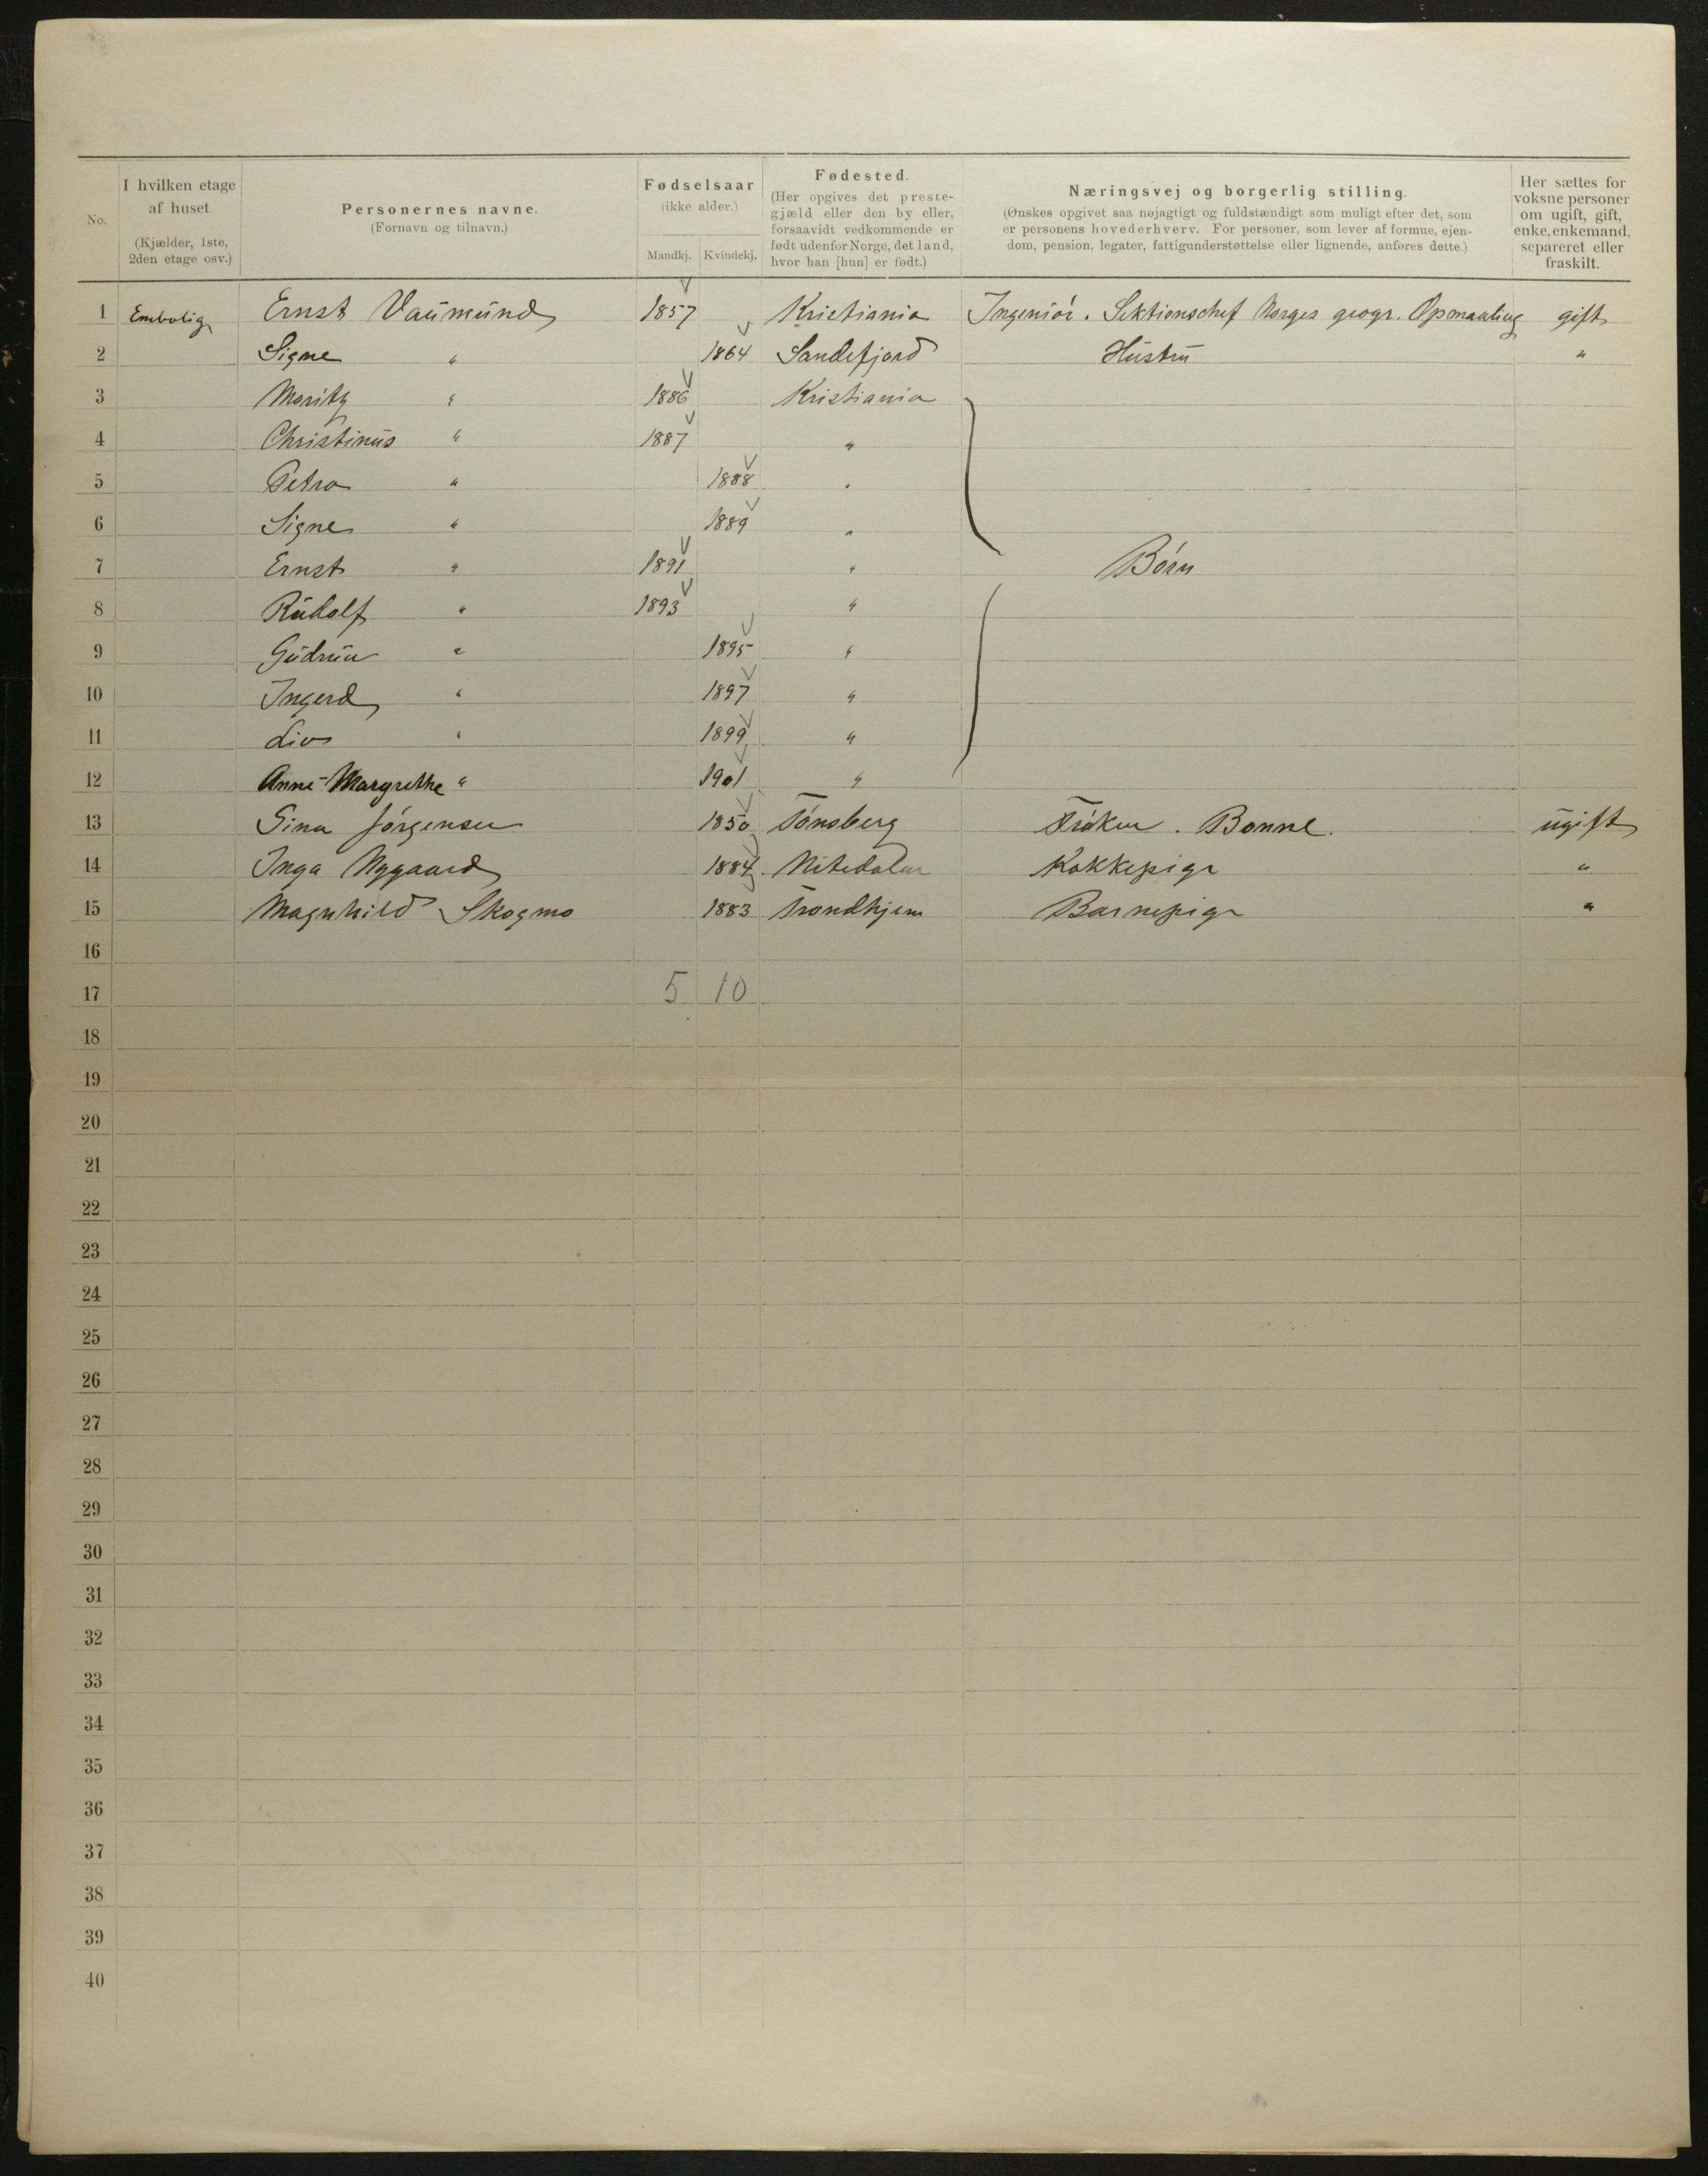 No.
I hvilken etage af huset.
(Kjælder, 1ste, 2den etage osv.)
Personernes navne.
(Fornavn og tilnavn.)
Fødselsaar
(ikke alder.)
Mandkj. Kvindekj.
Fødested.
(Her opgives det preste-
gjæld eller den by eller,
forsaavidt vedkommende er
født udenfor Norge, det land,
hvor han [hun] er født.)
Næringsvej og borgerlig stilling.
(Ønskes opgivet saa nøjagtigt og fuldstændigt som muligt efter det, som
er personens hovederhverv. For personer, som lever af formue, ejen-
dom, pension, legater, fattigunderstøttelse eller lignende, anføres dette.)
Her sættes for
voksne personer
om ugift, gift,
enke, enkemand,
separeret eller
fraskilt.
1 Enebolig Ernst Vaumund 1857 Kristiania Ingeniör. Sektionschef Norges geogr. Opmaaling gift
2 Signe " 1864 Sandefjord Hustru "
3 Moritz " 1886 Kristiania
4 Christinus " 1887 "
5 Petra " 1888 "
6 Signe " 1889 "
7 Ernst " 1891 " Börn
8 Rudolf " 1893 "
9 Gudrun " 1895 "
10 Ingerd " 1897 "
11 Liv " 1899 "
12 Anne-Margrethe " 1901 "
13 Sina Jörgensen 1850 Tönsberg Fröken. Bonne. ugift
14 Inga Nygaard 1884 Nitedalen Kokkepige "
15 Magnhild Skogmo 1883 Trondhjem Barnepige "
16
17 5 10
18
19
20
21
22
23
24
25
26
27
28
29
30
31
32
33
34
35
36
37
38
39
40